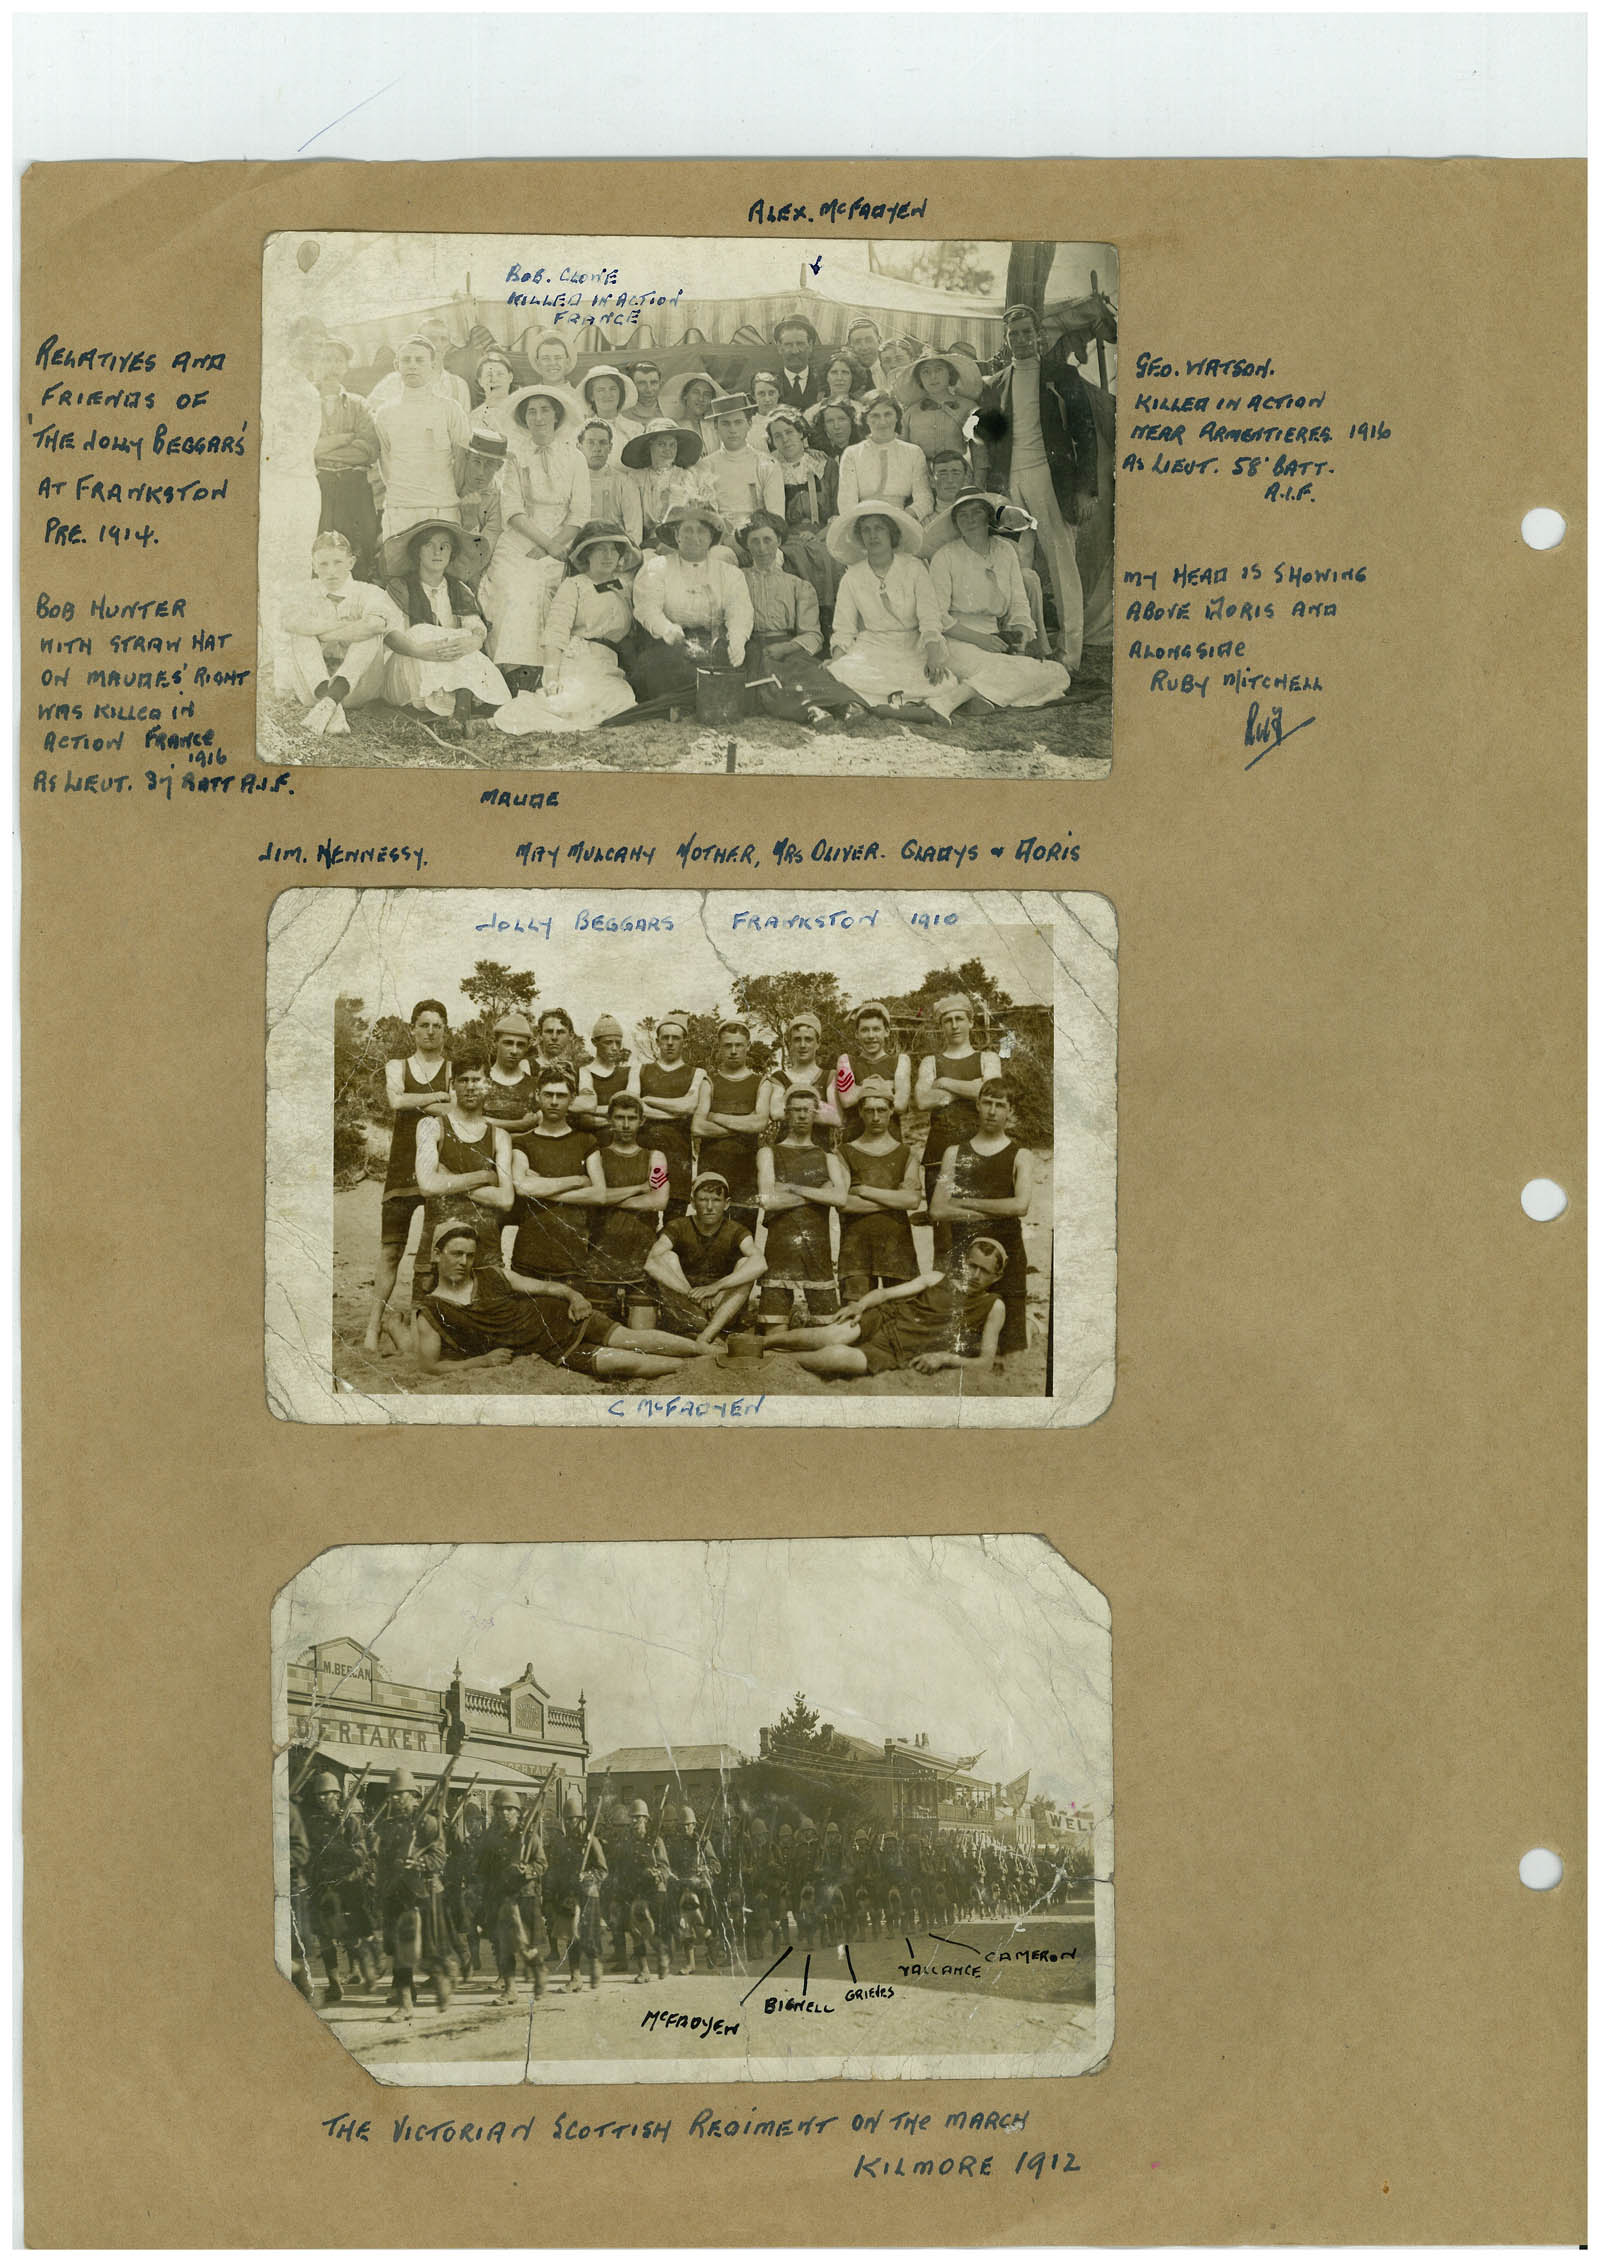 ALEX. McFADYEN
BOB. CLOWE
KILLED IN ACTION
FRANCE
RELATIVES AND
FRIENDS OF
'THE JOLLY BEGGARS'
AT FRANKSTON
PRE. 1914.
BOB HUNTER
WITH STRAW HAT
ON MAUDES' RIGHT
WAS KILLED IN
ACTION FRANCE
1916
AS LIEUT. BATT A.I.F.
GEO. WATSON.
KILLED IN ACTION
NEAR ARMENTIERES 1916
AS LIEUT. 58' BATT.
A.I.F.
MY HEAD IS SHOWING
ABOVE DORIS AND
ALONGSIDE
RUBY MITCHELL
MAUDE
JIM. HENNESSY. MAY MULCAHY MOTHER, MRS OLIVER. GLADYS & DORIS
JOLLY BEGGARS FRANKSTON 1910
C McFADYEN
M. BEEGAN
DERTAKER
DERTAKE
WEL
McFADYEN
BIGNELL
GRIEVES
VALLANCE
CAMERON
THE VICTORIAN SCOTTISH REGIMENT ON THE MARCH
KILMORE 1912